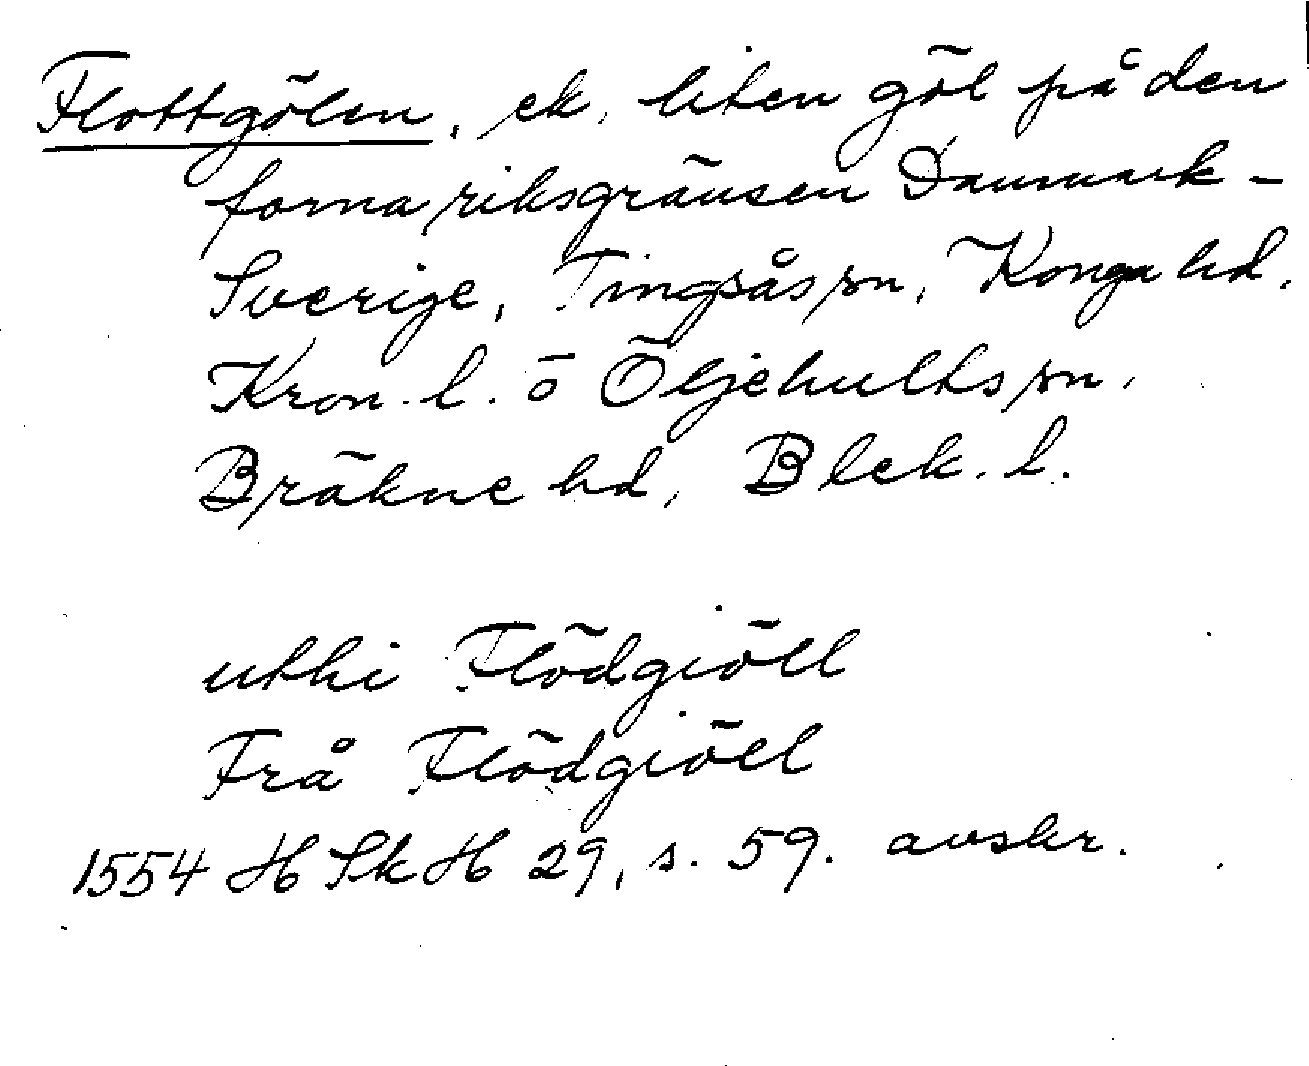 Flottgölen, ek, liten göl på den
forna riksgränsen Danmark -
Sverige, Tingsås sn, Konga hd.
Kron. l. o Öljehults sn,
Bräkne hd, Blek. l.
uthi Flödgiöll
Frå Flödgiöll
1554 H Sk H 29, s. 59. avskr.